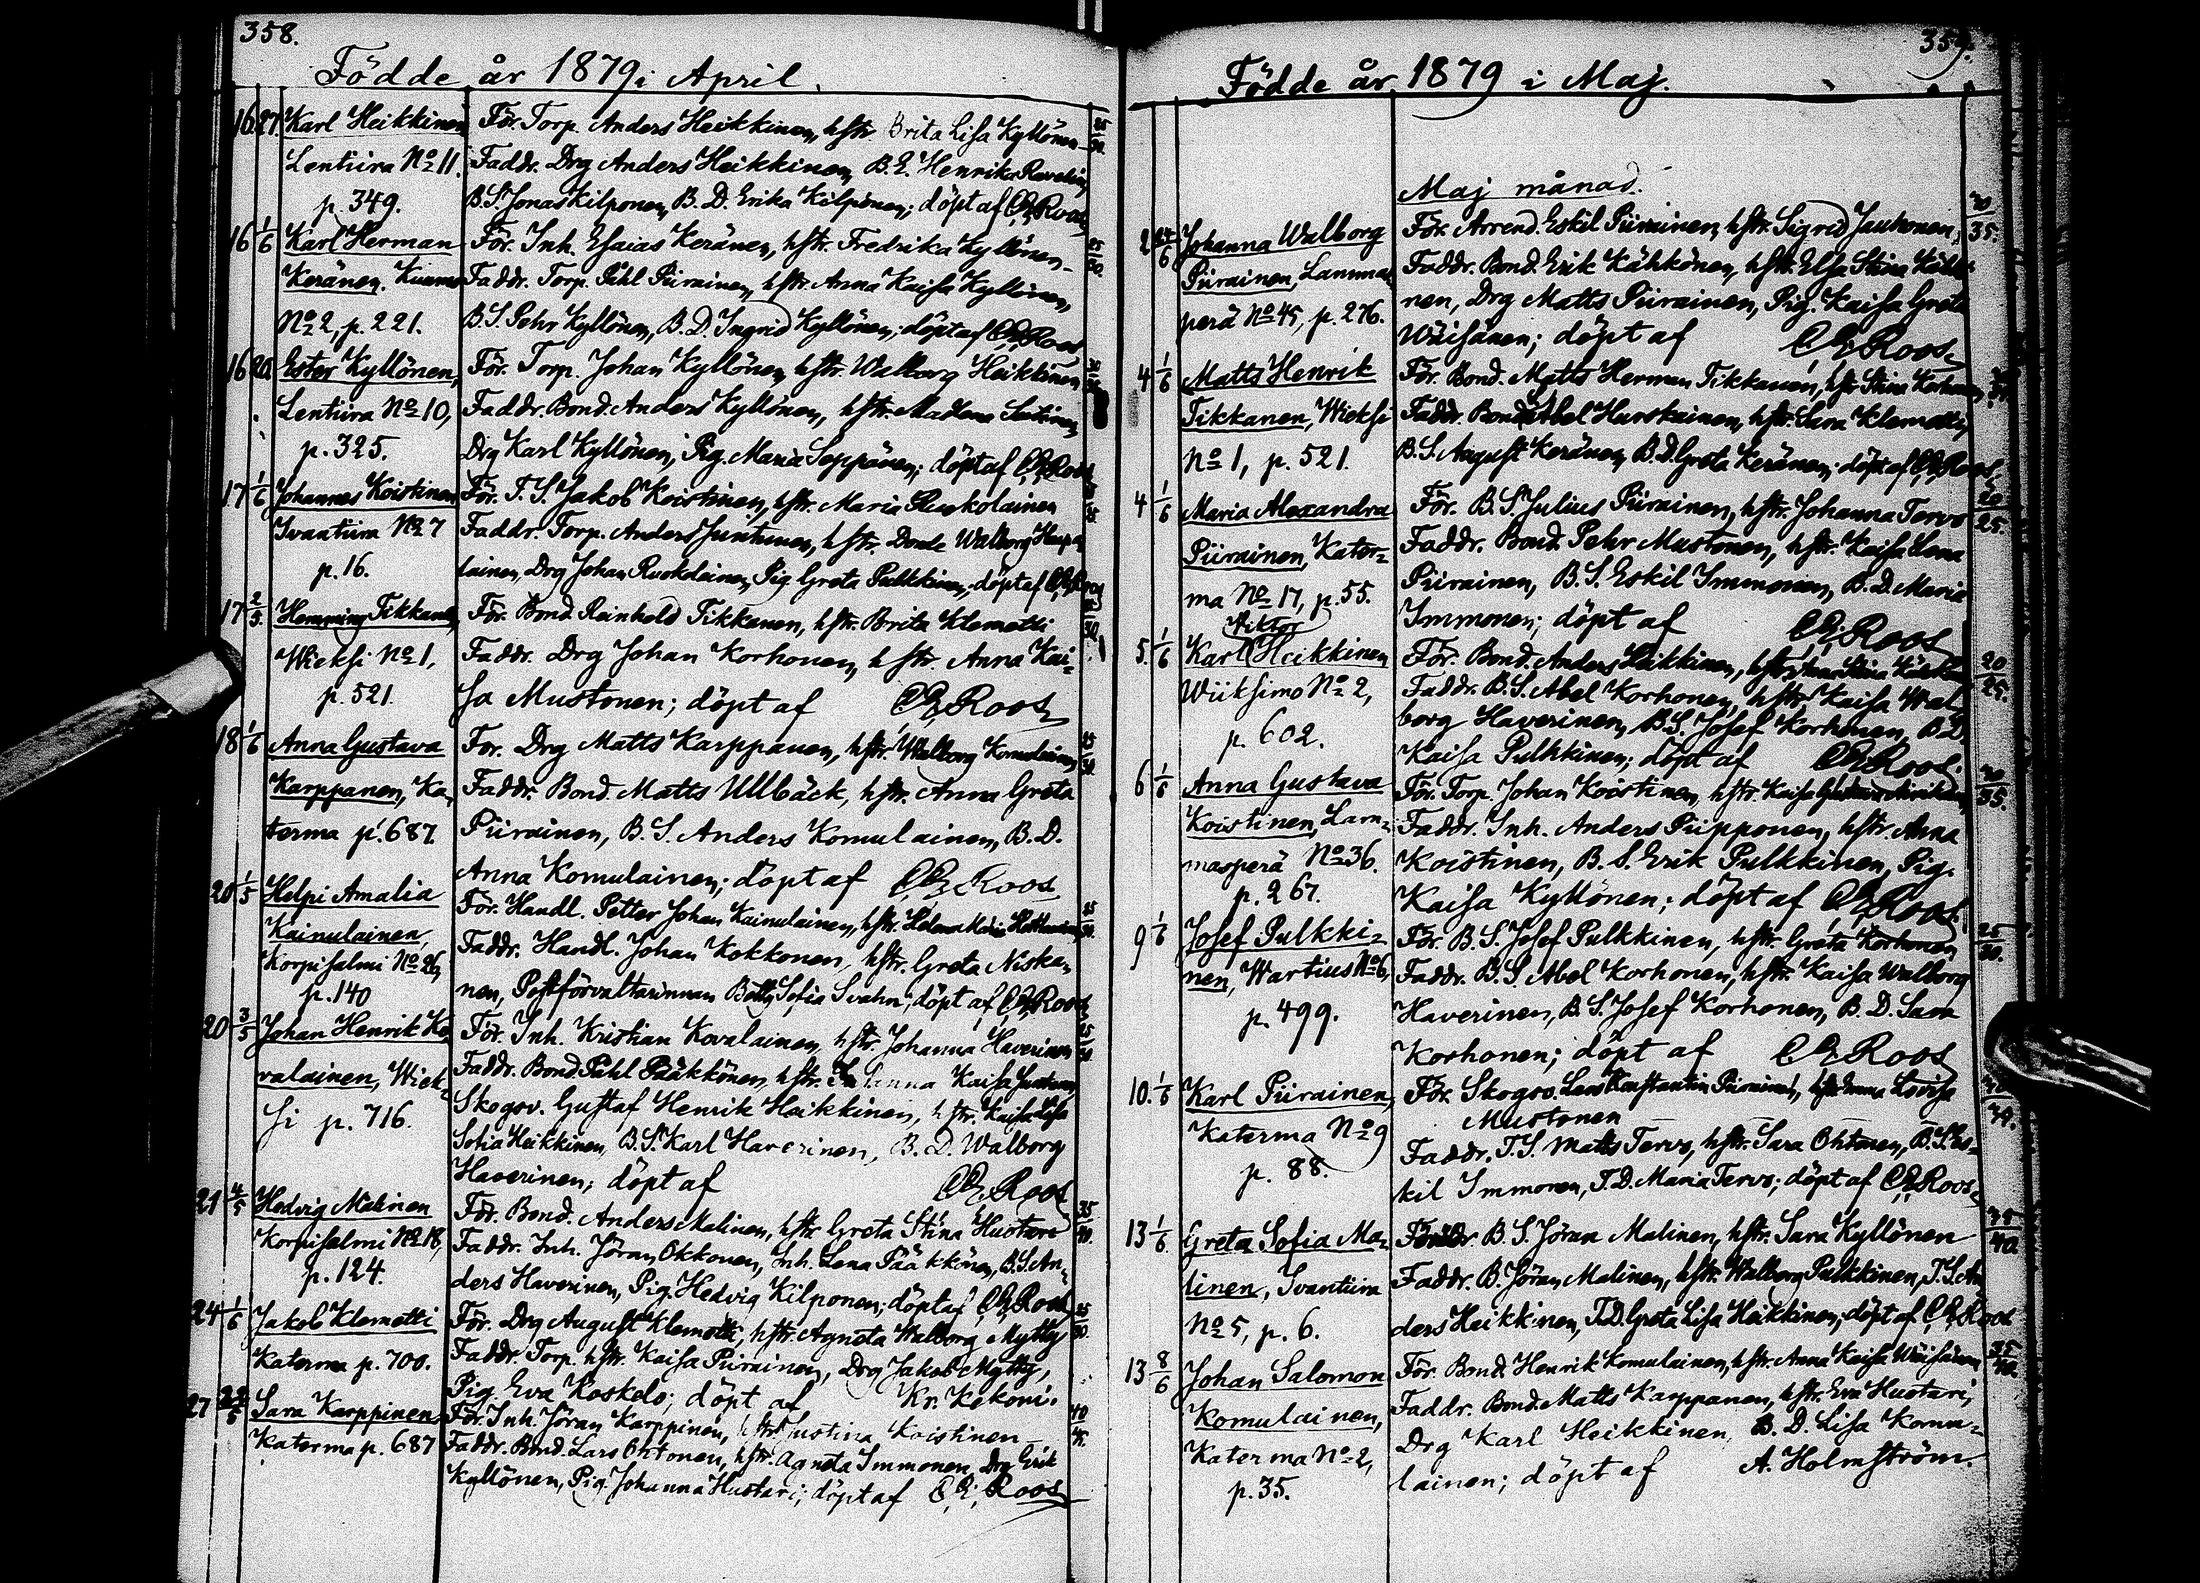 358.
Födde år 1879 i April.
16 27 Karl Heikkinen För. Torp. Anders Heikkinen, hstr. Brita Lisa Kyllönen
Lentiira No 11. Faddr. Drg Anders Heikkinen, B. E. Henrika
p. 349. B.S. Jonas Kilponen, B. D. Erika Kilponen; döpt af C E Roos
16 1/6 Karl Herman För. Inh. Esaias Keränen, hstr. Fredrika Kyllönen
Keränen. Kuumo Faddr. Torp. Påhl Piirainen, hstr. Anna Kaisa Kyllönen,
No 2, p. 221. B.S. Pehr Kyllönen, B. D. Ingrid Kyllönen; döpt af C E Roos
16 20 Ester Kyllönen, För. Torp. Johan Kyllönen, hstr. Walborg Heikkinen
Lentiira No 10, Faddr. Bond. Anders Kyllönen, hstr. Madlena
p. 325. Drg Karl Kyllönen, Pig. Maria Seppänen; döpt af C E Roos
17 1/6 Johannes Koistinen För. T. S. Jakob Koistinen, hstr. Maria Ruokolainen
Ivantiira No 7 Faddr. Torp. Anders Juntunen, hstr. Walborg
p. 16. lainen, Drg Johan Ruokolainen, Pig. Greta Pulkkinen; döpt af C E Roos
17 2/5 Hemming Tikkanen, För. Bond. Reinhold Tikkanen, hstr. Brita Klemetti
Wieksi No 1, Faddr. Drg Johan Korhonen, hstr. Anna Kai-
p. 521. sa Mustonen; döpt af C E Roos
18 1/6 Anna Gustava För. Drg Matts Karppanen, hstr. Walborg Komulainen,
Karppanen, Ka- Faddr. Bond. Matts Ullbäck, hstr. Anna Greta
terma p. 687. Piirainen, B. S. Anders Komulainen, B. D.
Anna Komulainen; döpt af C E Roos
20 1/5 Helpi Amalia För. Handl. Petter Johan Kainulainen, hstr. Helena Maria
Kainulainen, Faddr. Handl. Johan Kokkonen, hstr. Greta Niska-
Korpisalmi No 26, nen, Postförvaltarinnan Betty Sofia Svahn; döpt af C E Roos
p. 140
20 3/5 Johan Henrik Ko För. Inh. Kristian Kovalainen, hstr. Johanna Haverinen
valainen, Wiek- Faddr. Bond Påhl Pääkkönen, hstr. Kaisa
si p. 716. Skogsv. Gustaf Henrik Heikkinen, hstr. Kaisa Lisa
Sofia Heikkinen, B. S. Karl Haverinen, B. D. Walborg
Haverinen; döpt af C E Roos
21 4/5 Hedvig Malinen För. Bond. Anders Malinen, hstr. Greta Stina Hustare
Korpisalmi No 18, Faddr. Inh. Jöran Okkonen, Inh. Lena Pääkkönen, B. S. An-
p. 124. ders Haverinen, Pig. Hedvig Kilponen; döpt af C E Roos
24 1/6 Jakob Klemetti För. Drg August Klemetti, hstr. Agneta Walborg Mytty
Katerma p. 700. Faddr. Torp. hstr. Kaisa Piirainen, Drg Jakob Mytty,
Pig. Eva Koskelo; döpt af Kr. Kekoni.
27 Sara Karppinen För. Inh. Jöran Karppinen, hstr. Justina Koistinen
Katerma p. 687 Faddr. Bond. Lars Ohtonen, hstr. Agneta Immonen, Drg Erik
Kyllönen, Pig. Johanna Hustari; döpt af C. E. Roos
359.
Födde år 1879 i Maj.
Maj månad.
2 Johanna Walborg För. Arrend. Eskil Piirainen, hstr. Sigrid Jauhonen,
Piirainen, Lammas Faddr. Bond. Erik Kähkönen, hstr. Elsa Stina Kähkö-
perä No 45, p. 276. nen, Drg Matts Piirainen, Pig. Kaisa Greta
Wäisänen; döpt af C E Roos
4 1/6 Matts Henrik För. Bond. Matts Herman Tikkanen, hstr Stina Korhonen
Tikkanen, Wieksi Faddr. Bond Abel Hurskainen, hstr. Sara Klemetti,
No 1, p. 521. B. S. August Keränen, B. D. Greta Keränen; döpt af C E Roos
4 1/6 Maria Alexandra För. B. S. Julius Piirainen, hstr. Johanna Tervo
Piirainen, Kater- Faddr. Bond. Pehr Mustonen, hstr. Kaisa Lena
ma No 17, p. 55. Piirainen, B. S. Eskil Immonen, B. D. Maria
Immonen; döpt af C E Roos
Viktor
5. 1/6 Karl Heikkinen För. Bond. Anders Heikkinen, hstr. Anna Stina
Wiiksimo No 2, Faddr. B. S. Abel Korhonen, hstr. Kaisa Wal-
p. 602. borg Haverinen, B. S. Josef Korhonen, B. D.
Kaisa Pulkkinen; döpt af C E Roos.
6 1/6 Anna Gustava För. Torp. Johan Koistinen, hstr. Kaisa
Koistinen, Lam- Faddr. Inh. Anders Piipponen, hstr. Anna
masperä No 36. Koistinen, B. S. Erik Pulkkinen, Pig.
p. 267. Kaisa Kyllönen; döpt af C E Roos
9 1/6 Josef Pulkki- För. B. S. Josef Pulkkinen, hstr. Greta Korhonen
nen, Wartius No 6, Faddr. B. S Abel Korhonen, hstr. Kaisa Walborg
p. 499. Haverinen, B. S. Josef Korhonen, B. D. Sara
Korhonen; döpt af C E Roos
10. 1/6 Karl Piirainen, För. Skogsv. Lars Konstantin Piirainen, hstr Anna Lovisa
Katerma No 9 Mustonen
p. 88. Faddr. T. S. Matts Tervo, hstr. Sara Ohtonen, B. S. Es-
kil Immonen, T. D. Maria Tervo; döpt af C E Roos
13 1/6. Greta Sofia Ma- Föräldr. B. S. Jöran Malinen, hstr. Sara Kyllönen
linen, Ivantiira Faddr. B. Jöran Malinen, hstr. Walborg Pulkkinen, T. S. An
No 5, p. 6. ders Heikkinen, T. D. Greta Lisa Heikkinen; döpt af C E Roos
13 8/6 Johan Salomon För. Bond. Henrik Komulainen, hstr. Anna Kaisa Wäisänen
Komulainen, Faddr. Bond. Matts Karppanen, hstr. Eva Hustari,
Katerma No 2, Drg Karl Heikkinen, B. D. Lisa Komu-
p. 35. lainen; döpt af A. Holmström.